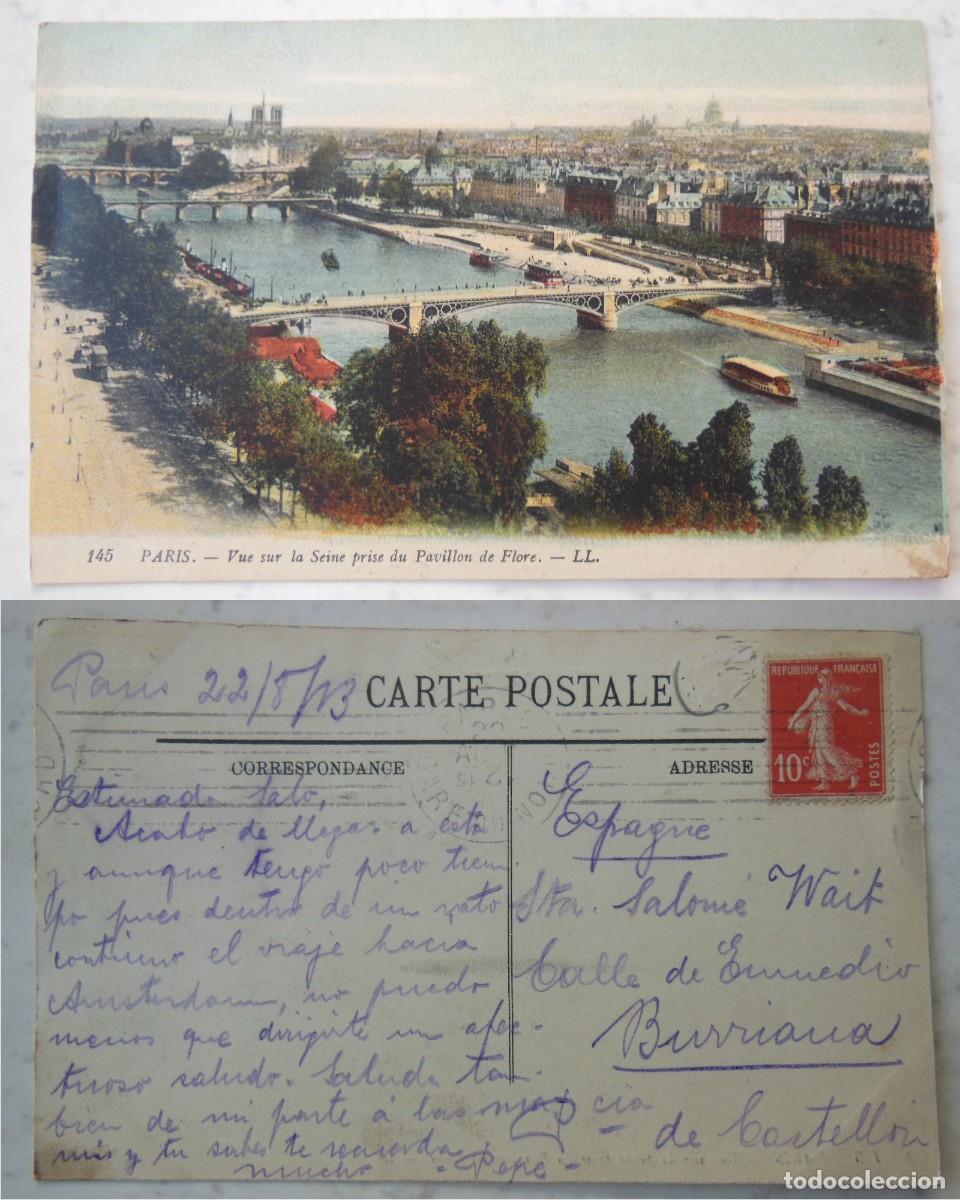 145 PARIS. — Vue sur la Seine prise du Pavillon de Flore. — LL.
Paris 22/8/13
CARTE POSTALE
REPUBLIQUE FRANÇAISE
10c
POSTES
CORRESPONDANCE
ADRESSE
Estimada Salo,
Acabo de llegar a esta
y aunque tengo poco tiem-
po pues dentro de un rato
continuo el viaje hacia
Amsterdam, no puedo
menos que dirigirte un afec-
tuoso saludo. Saluda tam-
bien de mi parte á las
mis y tu sabes te recuerda
mucho - Pepe -
Espagne
Sta. Salomé Wait
Calle de Enmedio
Burriana
cia de Castellón
todocoleccion